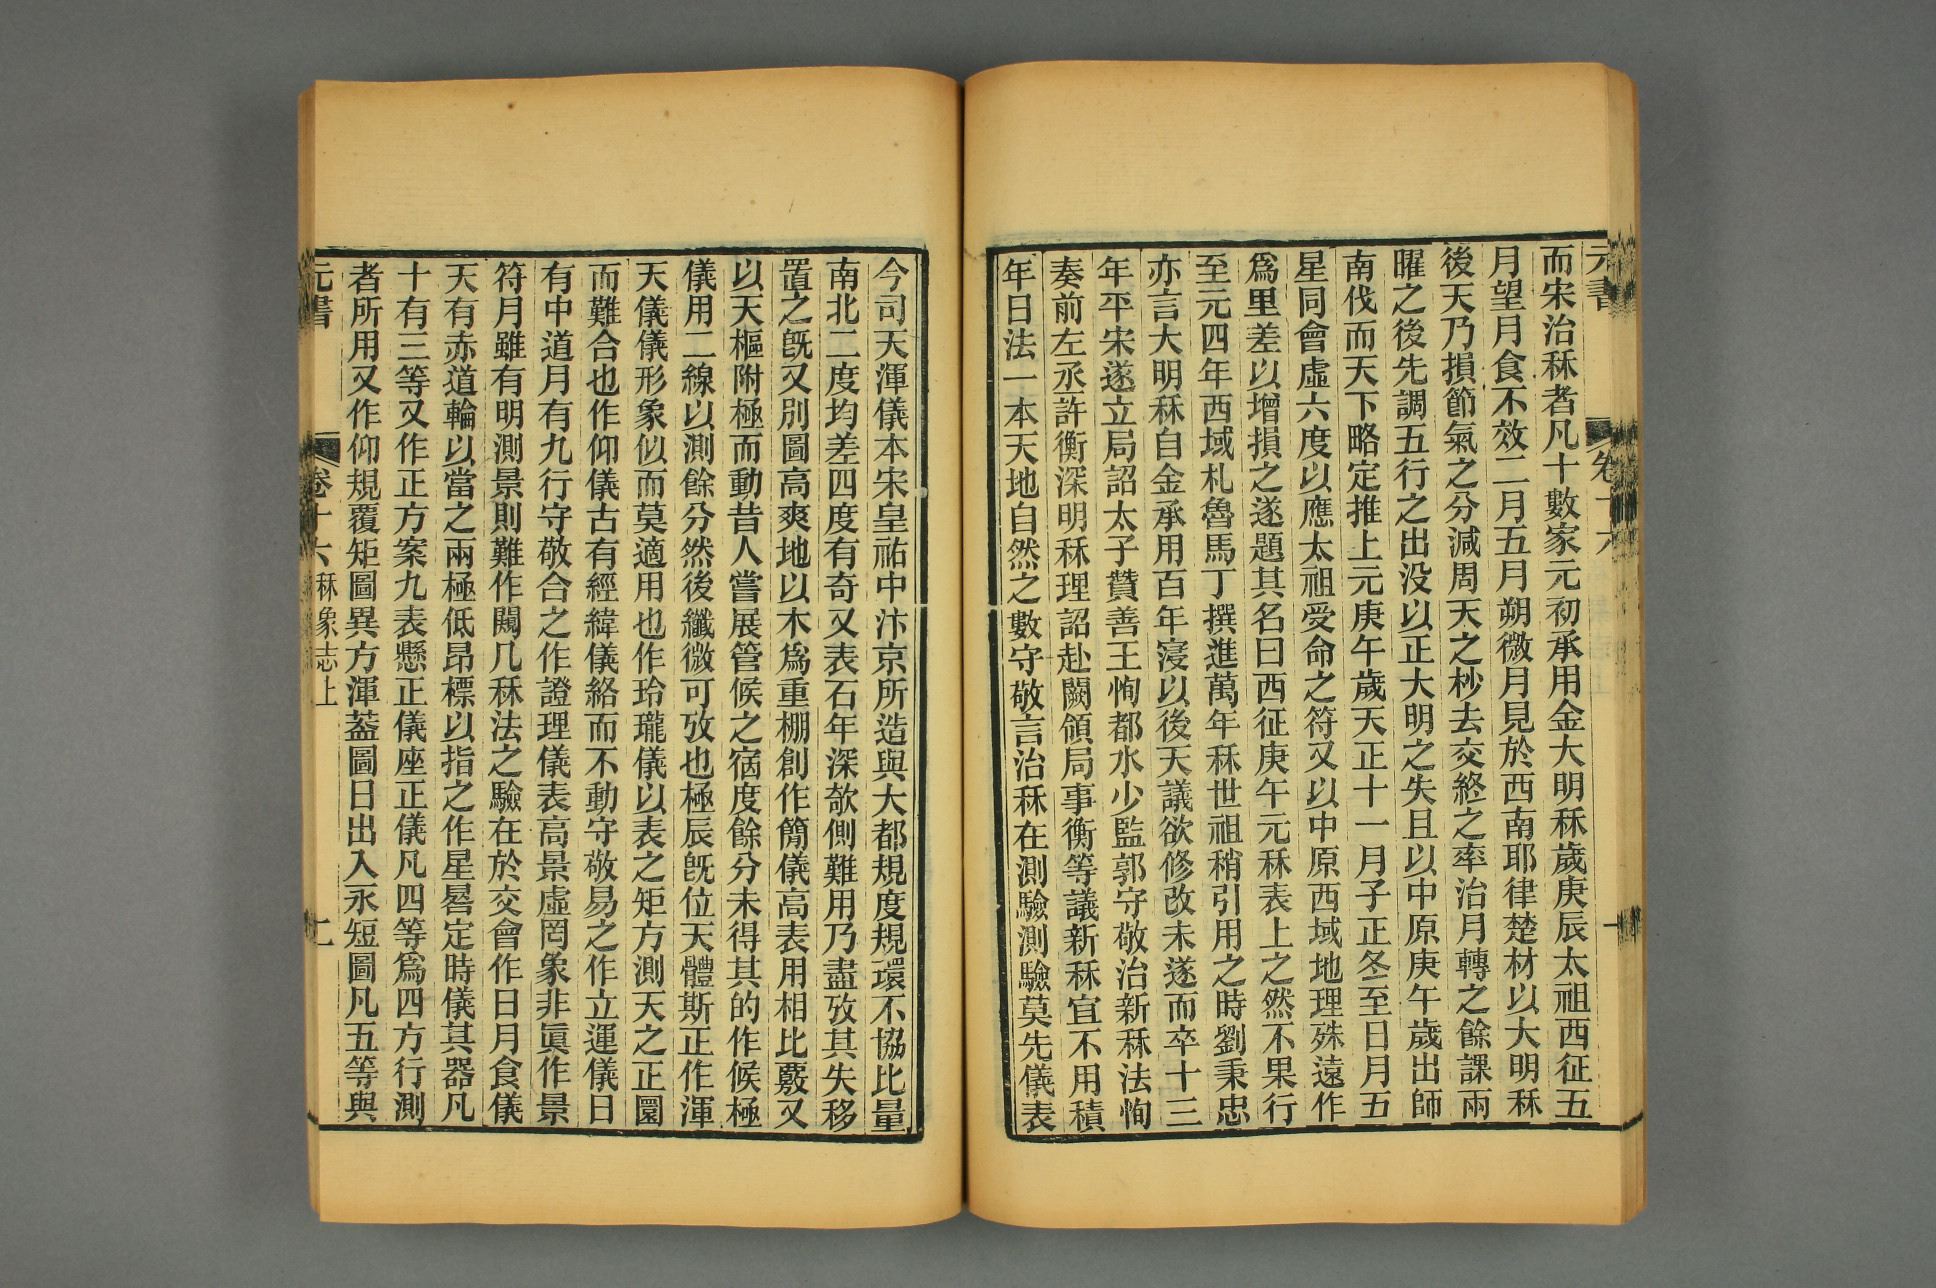 元書
卷十六
而宋治秝者凡十數家元初承用金大明秝歲庚辰太祖西征五
月望月食不效二月五月朔微月見於西南耶律楚材以大明秝
後天乃損節氣之分減周天之杪去交終之率治月轉之餘課兩
曜之後先調五行之出没以正大明之失且以中原庚午歲出師
南伐而天下略定推上元庚午歲天正十一月子正冬至日月五
星同會虛六度以應太祖受命之符又以中原西域地理殊遠作
爲里差以增損之遂題其名曰西征庚午元秝表上之然不果行
至元四年西域札魯馬丁撰進萬年秝世祖稍引用之時劉秉忠
亦言大明秝自金承用百年寖以後天議欲修改未遂而卒十三
年平宋遂立局詔太子贊善王恂都水少監郭守敬治新秝法恂
奏前左丞許衡深明秝理詔赴闕領局事衡等議新秝宜不用積
年日法一本天地自然之數守敬言治秝在測驗測驗莫先儀表
今司天渾儀本宋皇祐中汴京所造與大都規度規環不協比量
南北二度均差四度有奇又表石年深欹側難用乃盡攷其失移
置之旣又別圖高爽地以木爲重棚創作簡儀高表用相比覈又
以天樞附極而動昔人嘗展管候之宿度餘分未得其的作候極
儀用二線以測餘分然後纖微可攷也極辰旣位天體斯正作渾
天儀儀形象似而莫適用也作玲瓏儀以表之矩方測天之正圜
而難合也作仰儀古有經緯儀絡而不動守敬易之作立運儀日
有中道月有九行守敬合之作證理儀表高景虛罔象非眞作景
符月雖有明測景則難作闚几秝法之驗在於交會作日月食儀
天有赤道輪以當之兩極低昂標以指之作星晷定時儀其器凡
十有三等又作正方案九表懸正儀座正儀凡四等爲四方行測
者所用又作仰規覆矩圖異方渾葢圖日出入永短圖凡五等與
元書
卷十六秝象志上